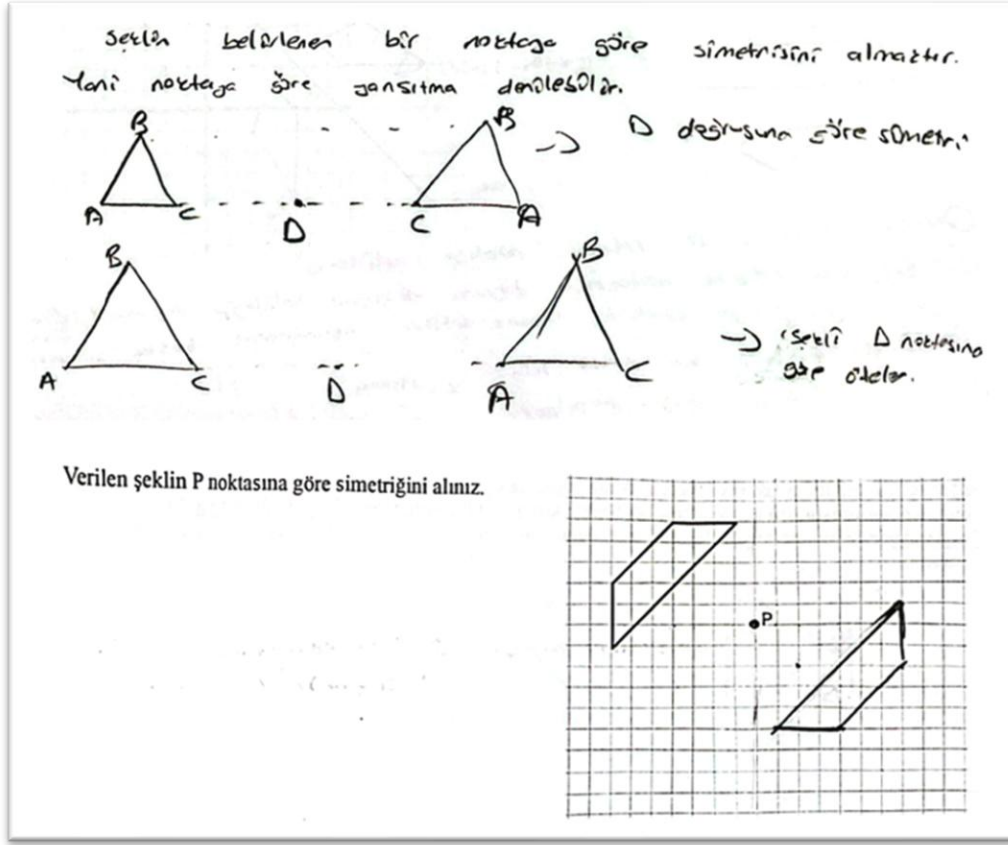 şeklin belirlenen bir noktaya göre simetrisini almaktır.
Yani noktaya göre yansıtma denilebilir.
B B
A C D C A
→ D doğrusuna göre simetri
B B
A C D A C
→ şekli D noktasına
göre öteler.
Verilen şeklin P noktasına göre simetriğini alınız.
P